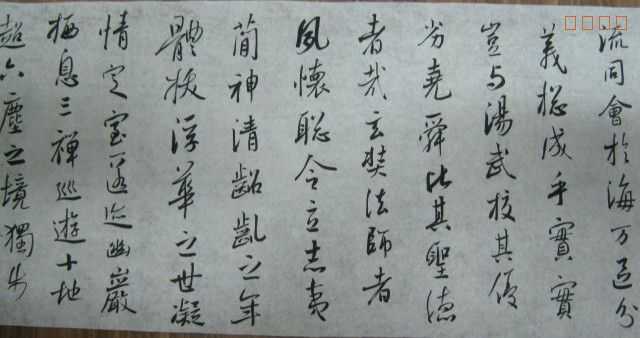 流同會於海万區分
義揔成乎實實
豈与湯武校其優
劣堯舜比其聖德
者哉玄奘法師者
夙懷聡令立志夷
簡神清齠齔之年
體拔浮華之世凝
情定室匿迹幽巖
栖息三禅巡遊十地
超六塵之境獨步